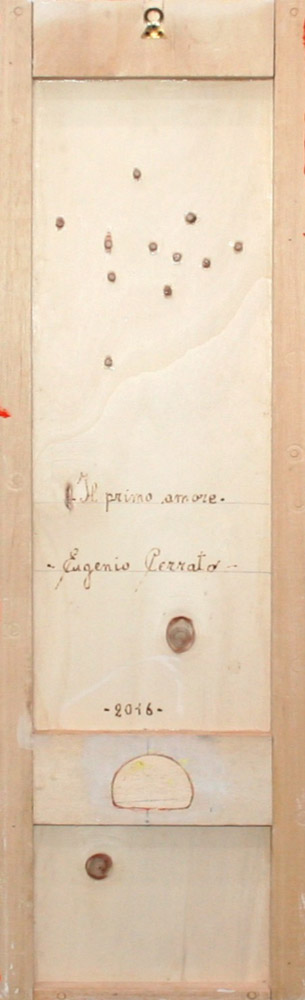 Il primo amore.
- Eugenio Perrato -
-2016-